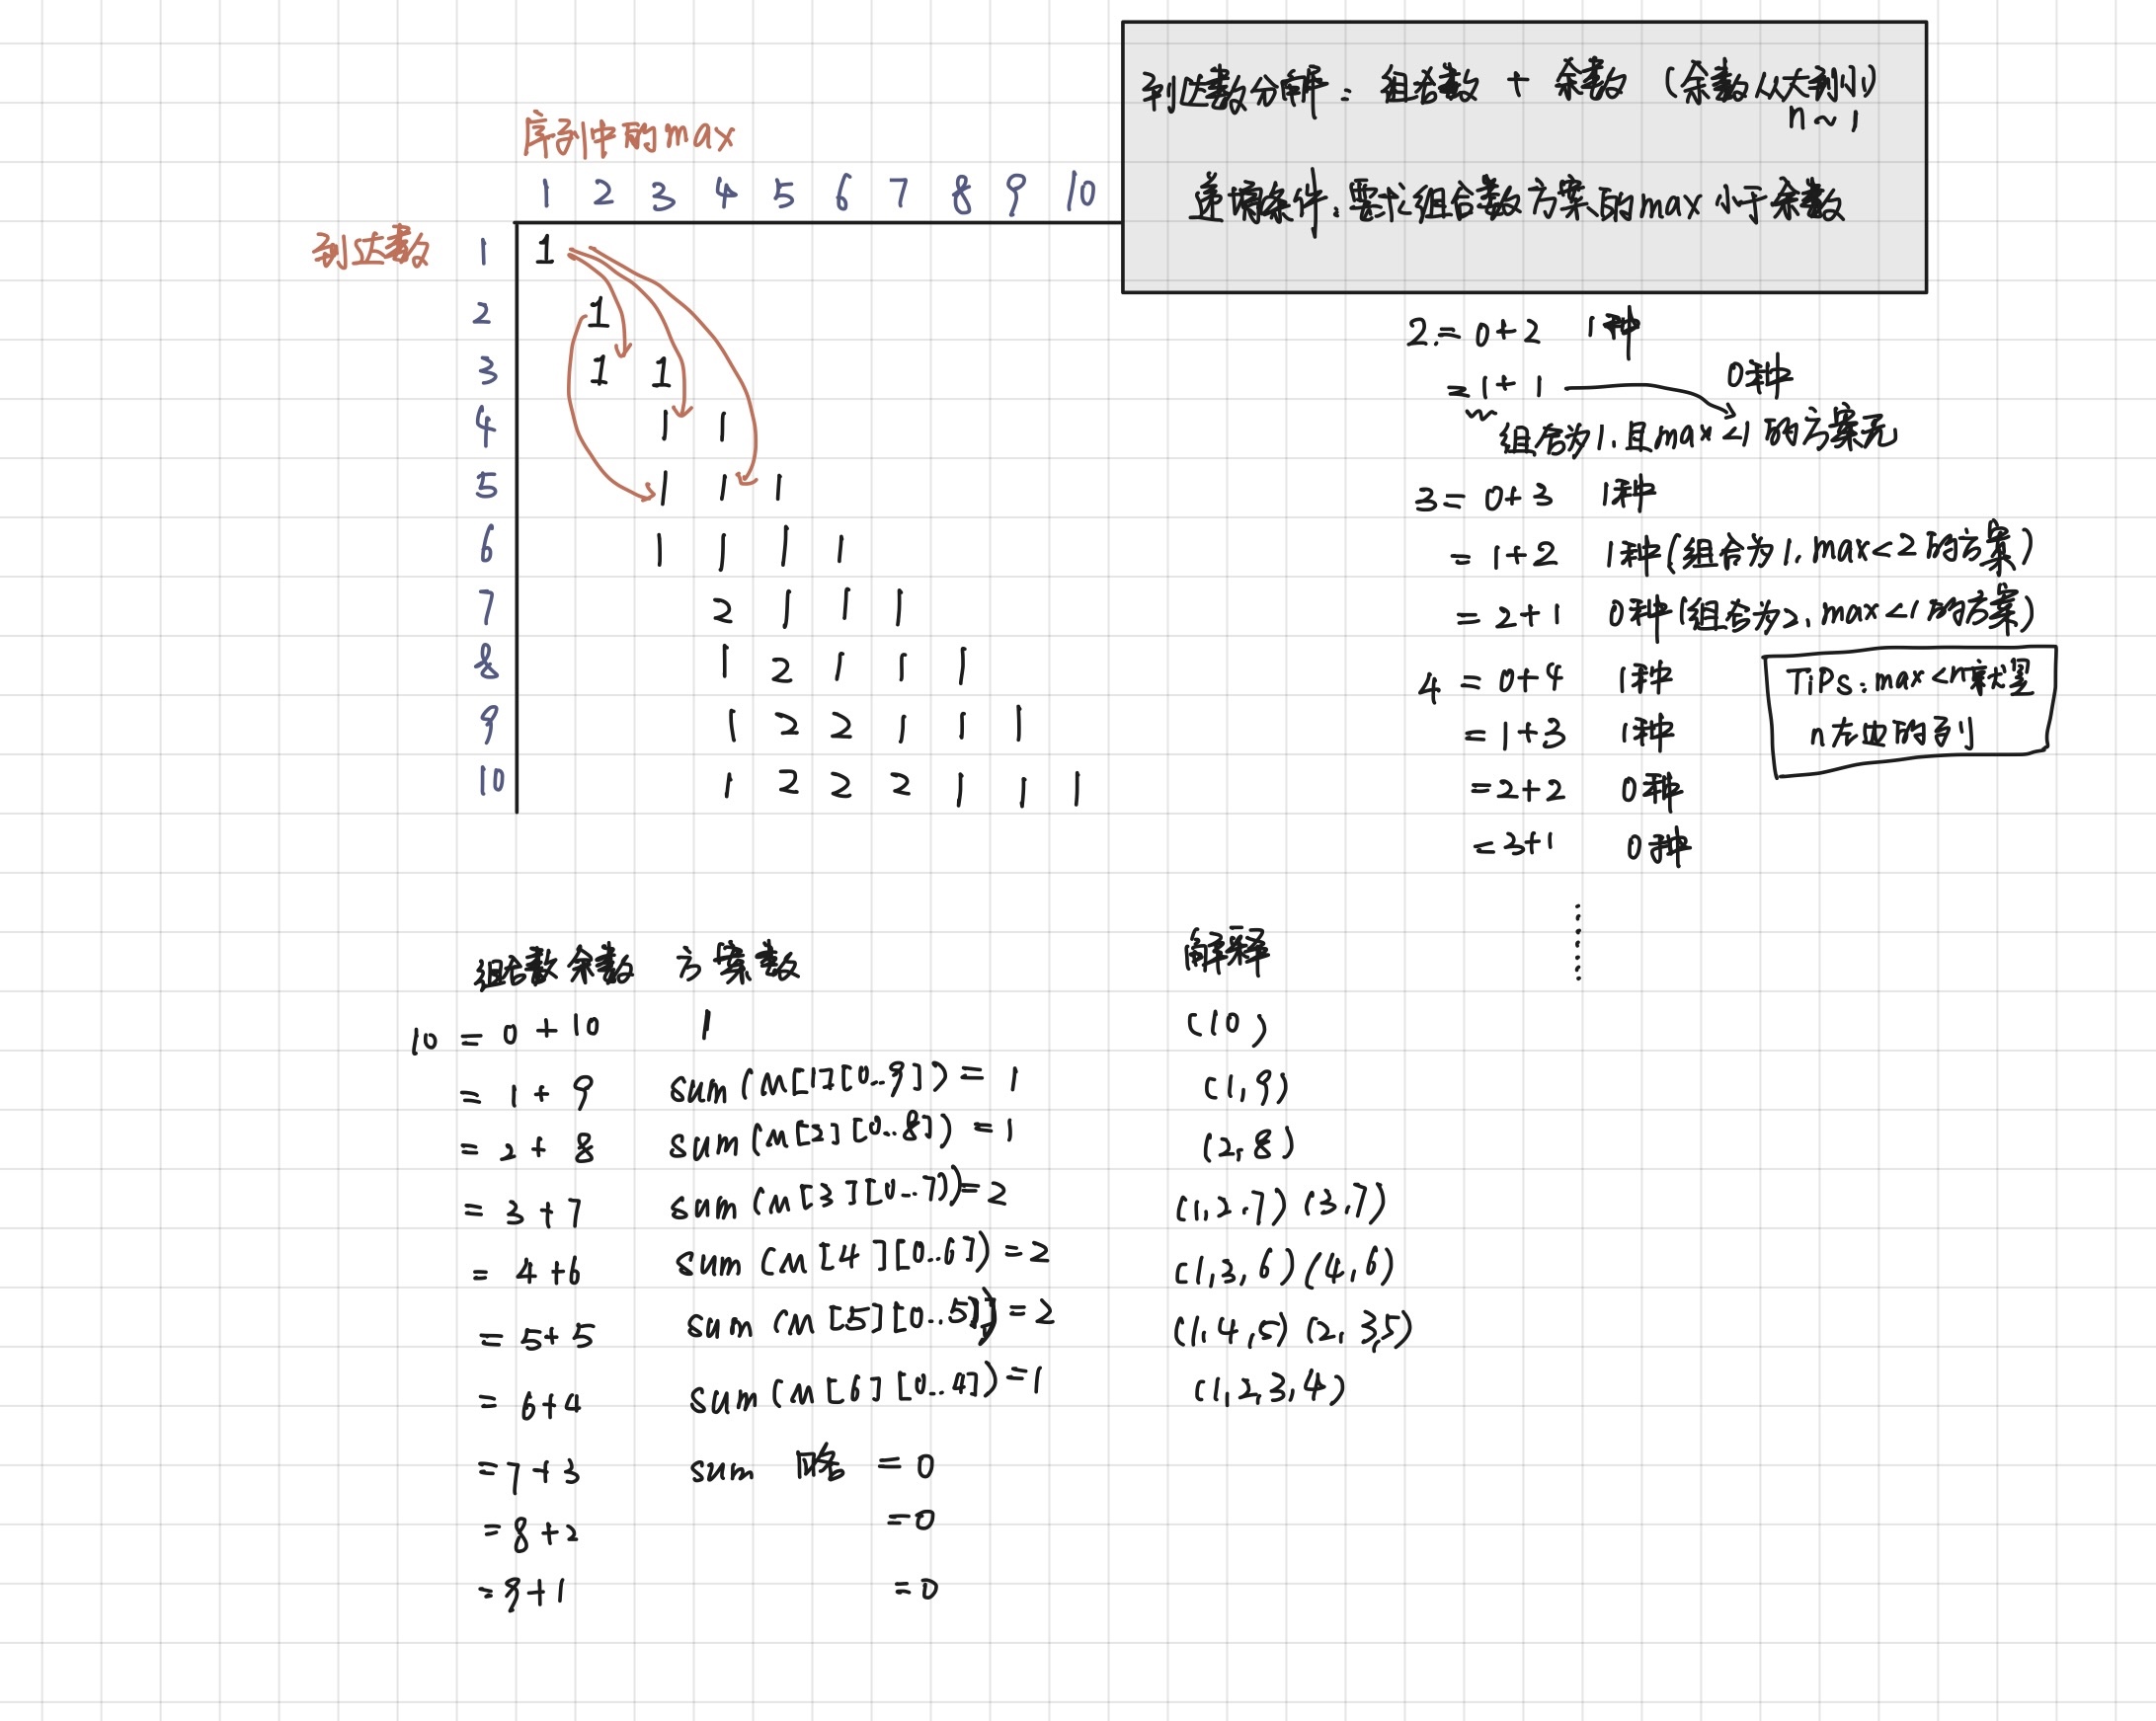 到达数分解：组合数 + 余数 （余数从大到小）
n~1
递增条件：要求组合数方案的max小于余数
序列中的max
1 2 3 4 5 6 7 8 9 10
到达数 1 1
2 1
3 1 1
4 1 1
5 1 1 1
6 1 1 1 1
7 2 1 1 1
8 1 2 1 1 1
9 1 2 2 1 1 1
10 1 2 2 2 1 1 1
2 = 0+2 1种
= 1+1 0种
组合为1. 且max<1的方案无
3 = 0+3 1种
= 1+2 1种(组合为1, max<2的方案)
= 2+1 0种(组合为2, max<1的方案)
4 = 0+4 1种
= 1+3 1种
= 2+2 0种
= 3+1 0种
TiPs: max<n就是
n左边的列
组合数 余数 方案数 解释
10 = 0 + 10 1 (10)
= 1 + 9 sum(M[1][0..9]) = 1 (1,9)
= 2 + 8 sum(M[2][0..8]) = 1 (2,8)
= 3 + 7 sum(M[3][0..7]) = 2 (1,2,7) (3,7)
= 4 + 6 sum(M[4][0..6]) = 2 (1,3,6) (4,6)
= 5 + 5 sum(M[5][0..5]) = 2 (1,4,5) (2,3,5)
= 6 + 4 sum(M[6][0..4]) = 1 (1,2,3,4)
= 7 + 3 sum 略 = 0
= 8 + 2 = 0
= 9 + 1 = 0